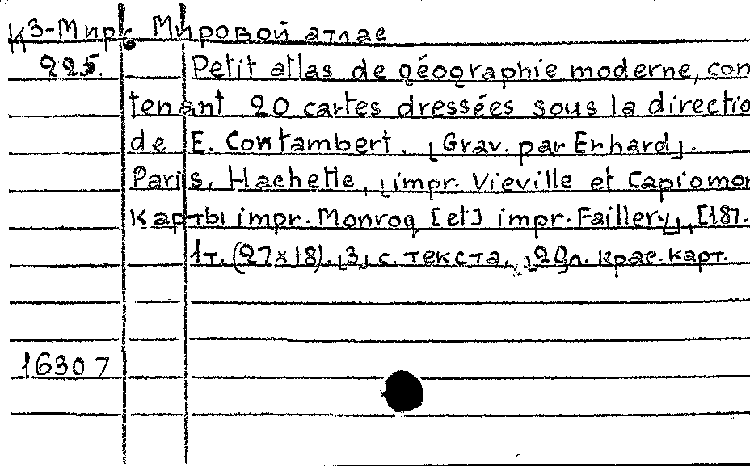 К3-Мир. Мировой атлас
225. Petit atlas de géographie moderne, con
tenant 20 cartes dressées sous la directio
de E. Contambert. [Grav. par Erhard].
Paris, Hachette, [impr. Vieville et Capiomon
Карты impr. Monroq [et] impr. Faillery], [187.
1т. (27×18). [3] с. текста, [20]л. крас. карт.
16307